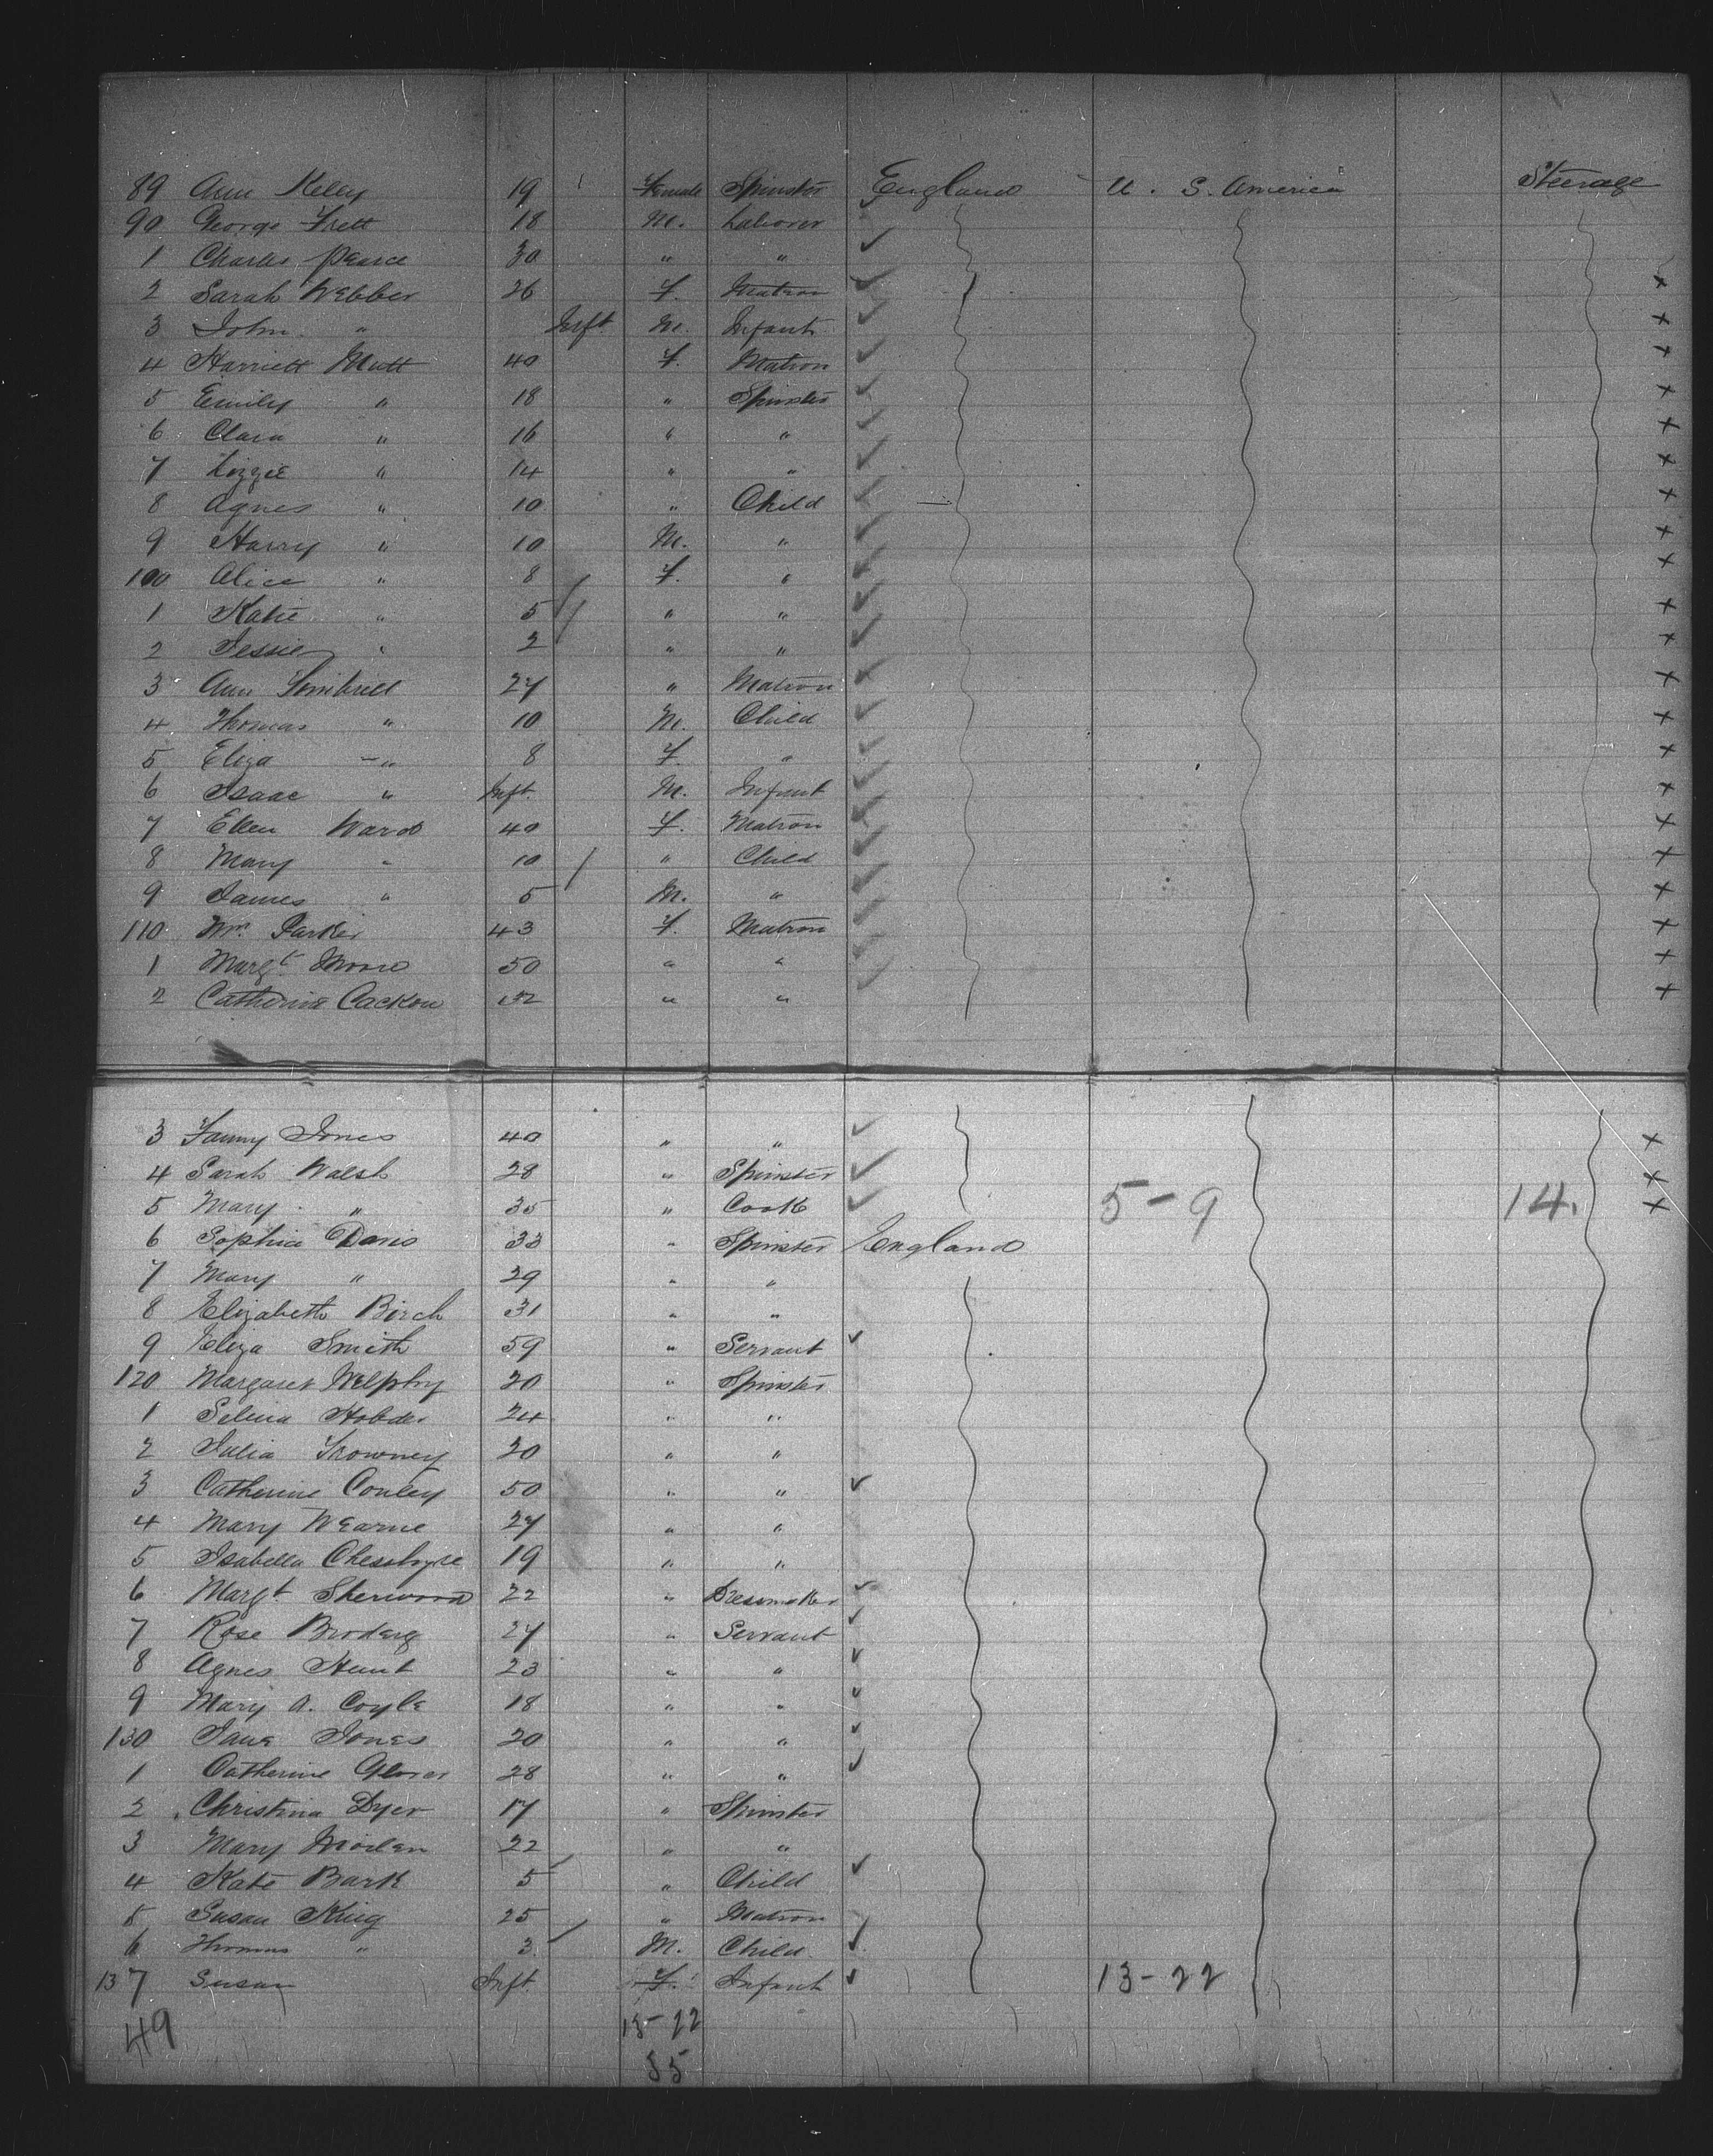 89 Ann Kelly 19 Female Spinster England U. S. America Steerage
90 George Trett 18 M. Laborer
1 Charles Pearce 30 " "
2 Sarah Webber 26 F. Matron
3 John " Inft M. Infant
4 Harriett Mutt 40 F. Matron
5 Emily " 18 " Spinster
6 Clara " 16 " "
7 Lizzie " 14 " "
8 Agnes " 10 " Child
9 Harry " 10 M. "
100 Alice " 8 F. "
1 Katie " 5 " "
2 Jessie " 2 " "
3 Ann 27 " Matron
4 Thomas " 10 M. Child
5 Eliza " 8 F. "
6 Isaac " Inft. M. Infant
7 Ellen Ward 40 F. Matron
8 Mary " 10 " Child
9 James " 5 M. "
110 Wm. Parker 43 F. Matron
1 Margt. Moore 50 " "
2 Catherine Cackon 52 " "
3 Fanny Jones 40 " "
4 Sarah Walsh 28 " Spinster
5 Mary " 35 " Cook 5-9 14.
6 Sophia Davis 33 " Spinster England
7 Mary " 29 " "
8 Elizabeth Birch 31 " "
9 Eliza Smith 59 " Servant
120 Margaret Welphy 20 " Spinster
1 Selina Hobder 24 " "
2 Julia Trowney 20 " "
3 Catherine Conley 50 " "
4 Mary Wearne 27 " "
5 Isabella 19 " "
6 Margt Sherwood 22 " Dressmaker
7 Rose Broderg 27 " Servant
8 Agnes Hunt 23 " "
9 Mary A. Coyle 18 " "
130 Jane Jones 20 " "
1 Catherine Glover 28 " "
2 Christina Dyer 17 " Spinster
3 Mary 22 " "
4 Kate Bark 5 " Child
5 Susan King 25 " Matron
6 Thomas " 3 M. Child
137 Susan Inft. F. Infant 13-22
49 13-22
55